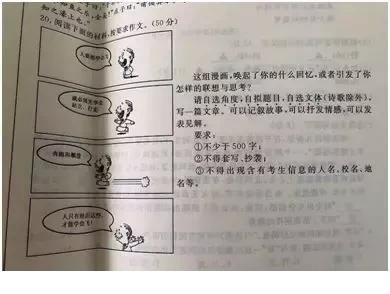 20. 阅读下面的材料，按要求作文。(50分)
人要想学会飞
就必须先学会
站立、行走、
奔跑和攀登
人只有经历这些，
才能学会飞！
这组漫画，唤起了你的什么回忆，或者引发了你
怎样的联想与思考？
请自选角度，自拟题目，自选文体(诗歌除外)，
写一篇文章。可以记叙故事，可以抒发情感，可以发
表见解。
要求：
①不少于500字；
②不得套写、抄袭；
③不得出现含有考生信息的人名、校名、地
名等。